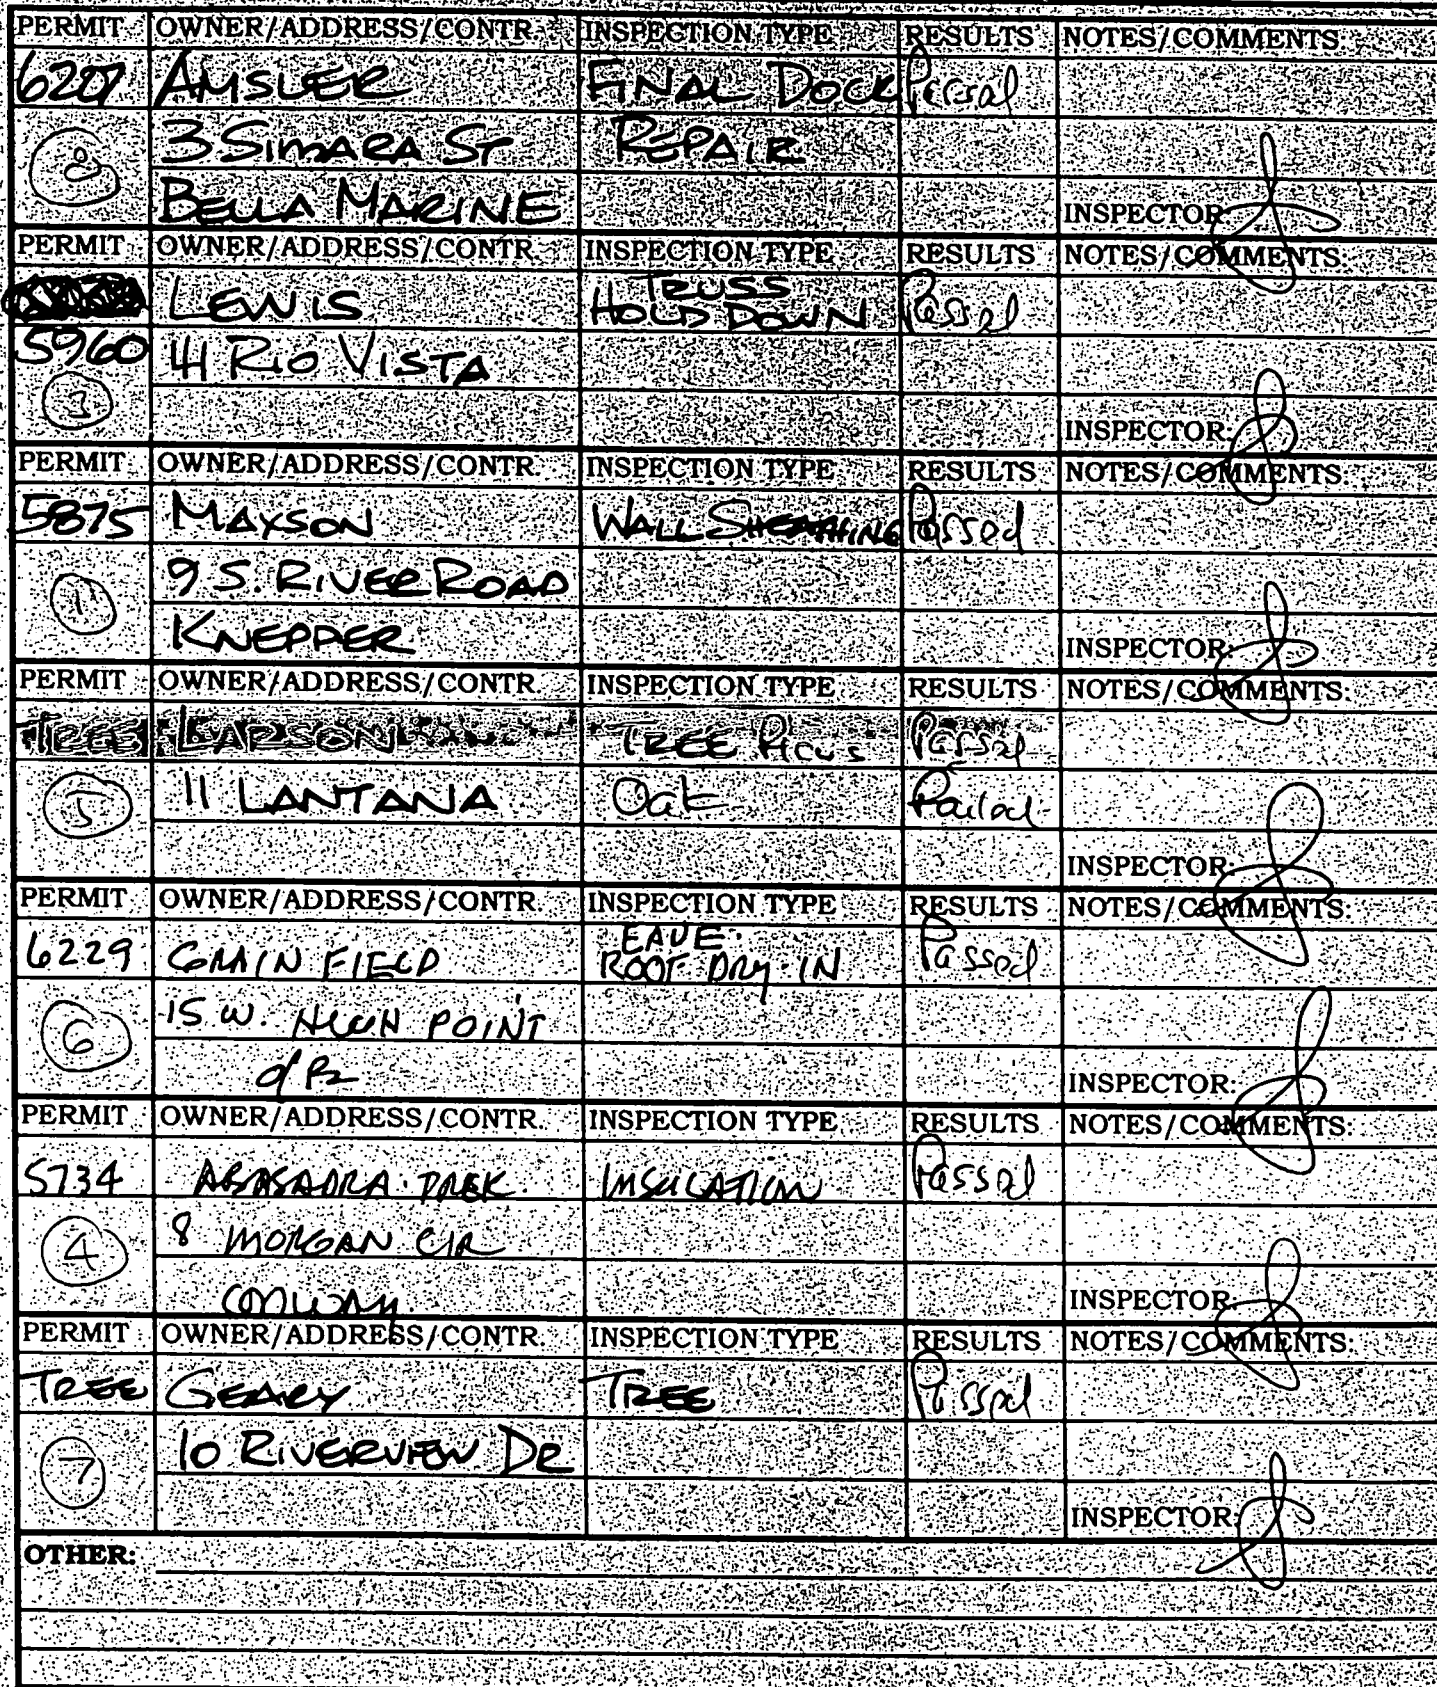 PERMIT OWNER/ADDRESS/CONTR. INSPECTION TYPE RESULTS NOTES/COMMENTS:
AMSLER FINAL DOCK Passed
3 SIMARA ST REPAIR
BELLA MARINE INSPECTOR:
PERMIT OWNER/ADDRESS/CONTR. INSPECTION TYPE RESULTS NOTES/COMMENTS:
LEWIS TRUSS HOLD DOWN Passed
5960 RIO VISTA
3 INSPECTOR:
PERMIT OWNER/ADDRESS/CONTR. INSPECTION TYPE RESULTS NOTES/COMMENTS:
5875 MAYSON WALL SHEATHING Passed
1 9 S. RIVER ROAD
KNEPPER INSPECTOR:
PERMIT OWNER/ADDRESS/CONTR. INSPECTION TYPE RESULTS NOTES/COMMENTS:
TREE LARSON TREE Ficus Passed
5 11 LANTANA Oak Failed
INSPECTOR:
PERMIT OWNER/ADDRESS/CONTR. INSPECTION TYPE RESULTS NOTES/COMMENTS:
6229 EAVE ROOF DRY-IN Passed
6 15 W. HIGH POINT
INSPECTOR:
PERMIT OWNER/ADDRESS/CONTR. INSPECTION TYPE RESULTS NOTES/COMMENTS:
5734 INSULATION Passed
4 8 MORGAN CIR
CONWAY INSPECTOR:
PERMIT OWNER/ADDRESS/CONTR. INSPECTION TYPE RESULTS NOTES/COMMENTS:
TREE GEARY TREE Passed
7 10 RIVERVIEW DR
INSPECTOR:
OTHER: